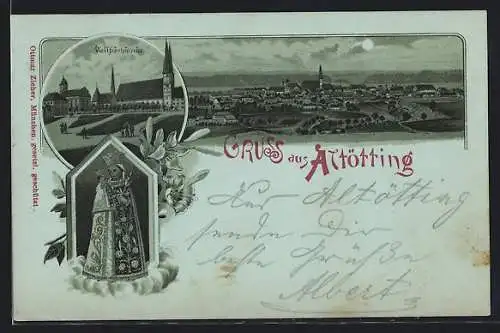 Wallfahrtskirche
GRUSS aus ALTÖTTING
Ottmar Zieher, München, gesetzl. geschützt.
Altötting
sende Dir
beste Grüße
Albert